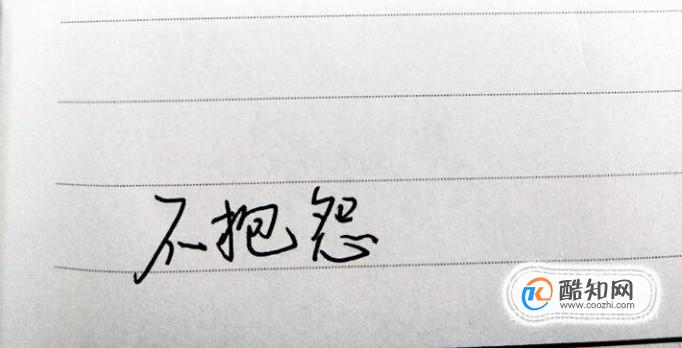 不抱怨
酷知网
www.coozhi.com